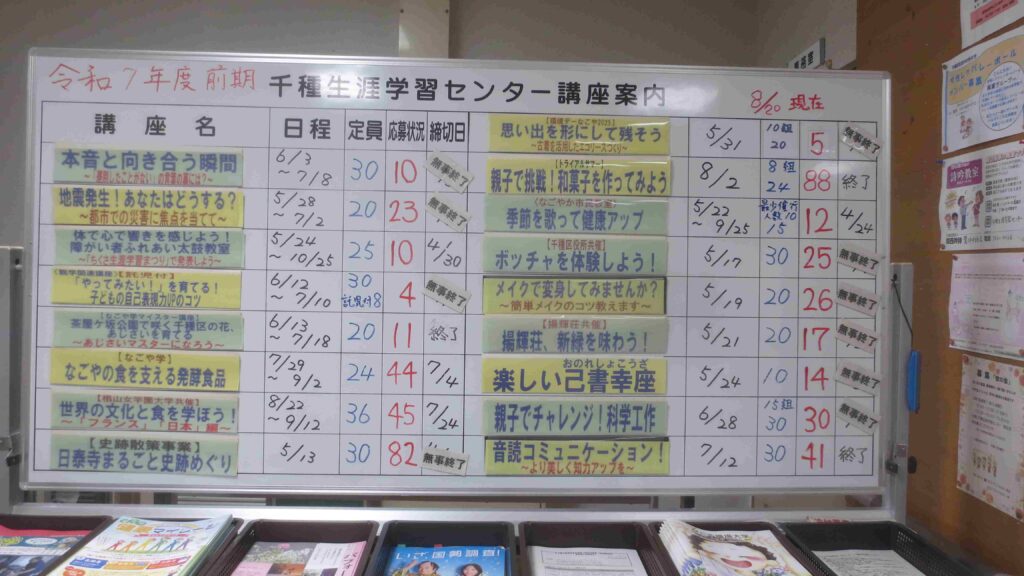 令和7年度前期 千種生涯学習センター講座案内 8/20 現在
講座名 日程 定員 応募状況 締切日
本音と向き合う瞬間 6/3 ～7/18 30 10 無事終了
地震発生！あなたはどうする？ 5/28 ～7/2 20 23 無事終了
～都市での災害に焦点を当てて～
体で心で響きを感じよう！ 5/24 ～10/25 25 10 4/30
障がい者ふれあい太鼓教室
～「ちくさ生涯学習まつり」で発表しよう～
「やってみたい！」を育てる！ 6/12 ～7/10 30 託児付8 4 無事終了
子どもの自己表現力UPのコツ
茶屋ケ坂公園で咲く千種区の花、 6/13 ～7/18 20 11 終了
あじさいを育てる
～あじさいマスターになろう～
【なごや学】
なごやの食を支える発酵食品 7/29 ～9/2 24 44 7/4
【椙山女学園大学共催】
世界の文化と食を学ぼう！ 8/22 ～9/12 36 45 7/24
～「フランス」「日本」編～
【史跡散策事業】
日泰寺まるごと史跡めぐり 5/13 30 82 無事終了
【環境デーなごや2025】
思い出を形にして残そう 5/31 10組 20 5 無事終了
～古着を活用したエコリースづくり～
【トライアルサマー】
親子で挑戦！和菓子を作ってみよう 8/2 8組 24 88 終了
季節を歌って健康アップ 5/22 ～9/25 15 12 4/24
【千種区役所共催】
ボッチャを体験しよう！ 5/17 30 25 無事終了
メイクで変身してみませんか？ 5/19 20 26 無事終了
～簡単メイクのコツ教えます～
【揚輝荘共催】
揚輝荘、新緑を味わう！ 5/21 20 17 無事終了
おのれしょこうざ
楽しい己書幸座 5/24 10 14 無事終了
親子でチャレンジ！科学工作 6/28 15組 30 30 無事終了
音読コミュニケーション！ 7/12 30 41 終了
～より美しく知力アップを～
詩吟教室
いざ国勢調査！